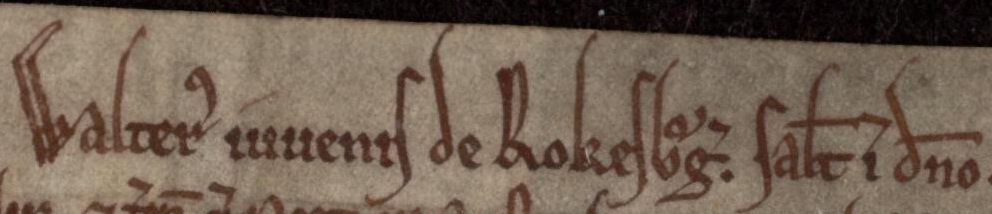 Walterꝰ iuuenis de Rokesbᵒg̃. salt̃ ĩ dn̄o.